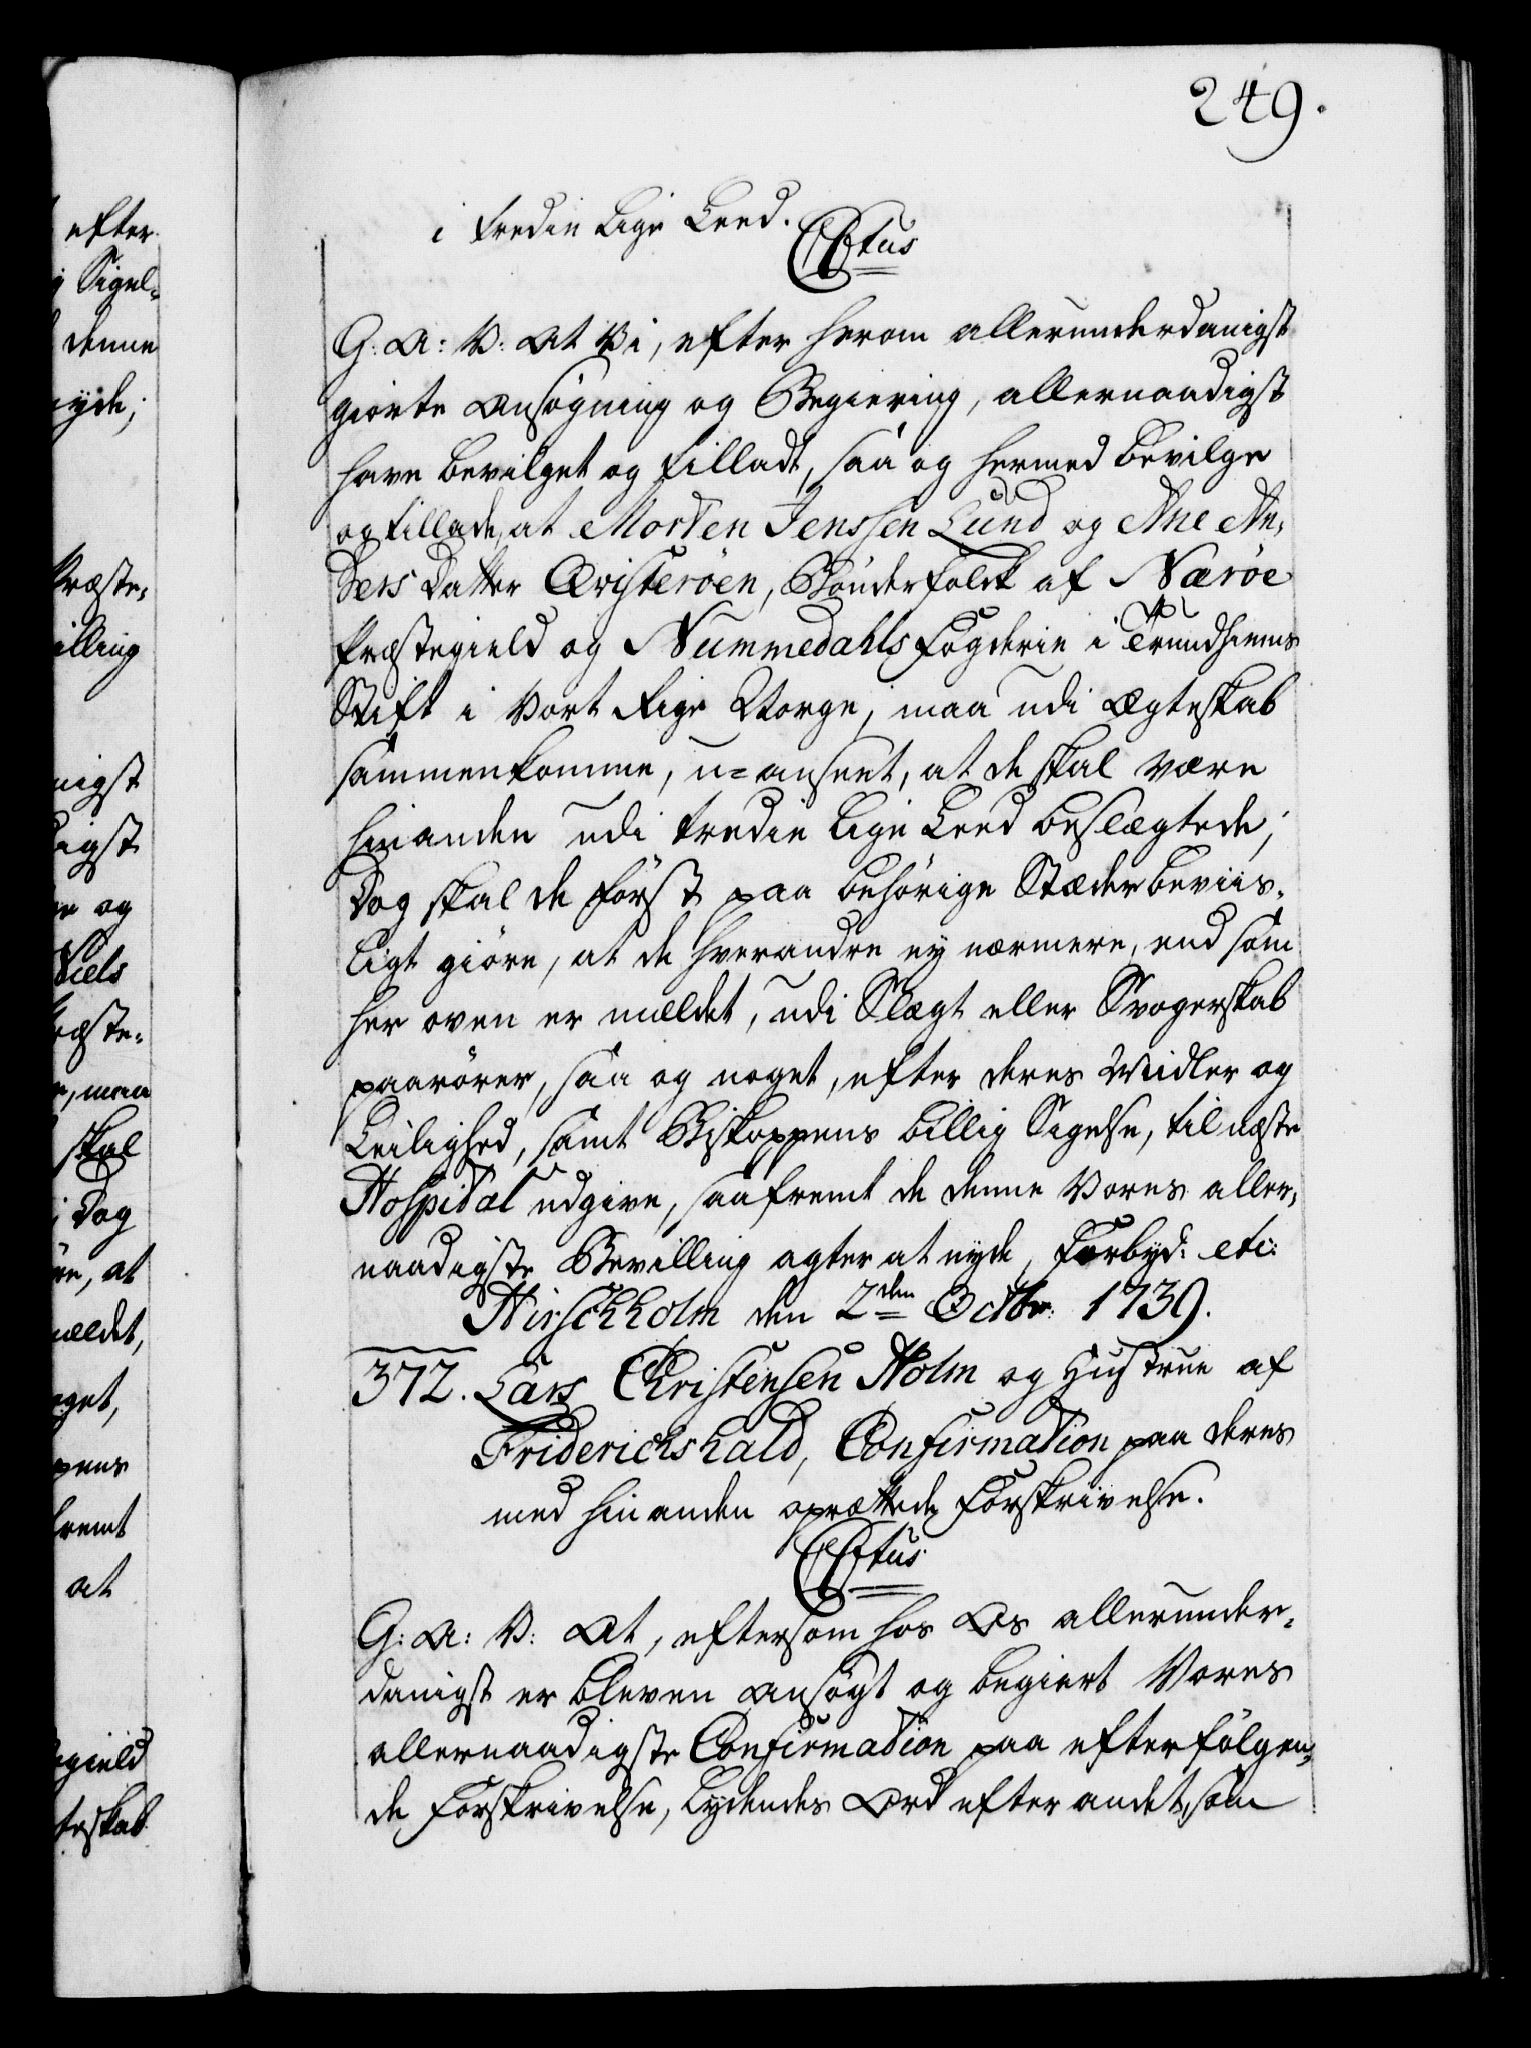 249.
i tredie Lige Leed.
CVtus
G: A: V: At Vi, efter herom allerunderdanigst
giorte Ansøgning og Begiering, allernaadigst
have bevilget og tilladt, saa og hermed bevilge
og tillade, at Morten Jenssen Lund og Ane An-
ders Datter Qvisterøen, Bønderfolck af Nærøe
Præstegield og Nummedahls Fogderie i Trundhiems
Stift i Vort Rige Norge, maa udi Ægteskab
sammenkomme, u-anseet, at de skal være
hinanden udi tredie lige Leed beslægtede;
Dog skal de først paa behørige Stæder beviis-
ligt giøre, at de hverandre ey nærmere, end som
her oven er meldet, udi Slægt eller Svogerskab
paarører, saa og noget, efter deres Midler og
Leilighed, samt Biskoppens billig Sigelse, til næste
Hospital udgive, saafremt de denne Vores aller-
naadigste Bevilling agter at nyde, Forbyd: etc:
Hirschholm den 2den Octbr: 1739.
372. Lars Christensen Holm og Hustrue af
Friderichshald, Confirmation paa deres
med hinanden oprettede Forskrivelse.
CVtus
G: A: V: At, eftersom hos Os allerunder-
danigst er bleven ansøgt og begiert Vores
allernaadigste Confirmation paa efterfølgen-
de Forskrivelse, lydendes Ord efter andet, som
efter
Sigel-
denne
nyde;
Præste-
villing
nigst
digst
og
Niels
Præste-
maa
skal
Dog
at
meldet,
noget,
pens
fremt
at
gield
teskab